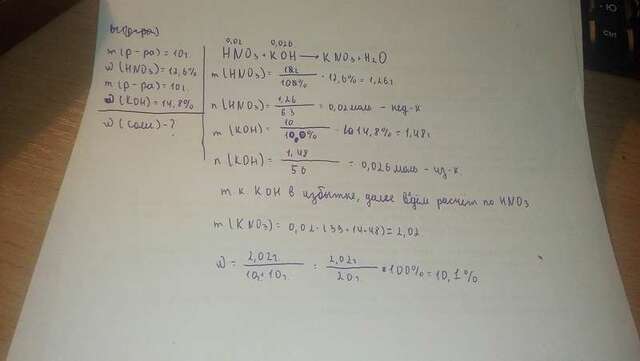 m(р-ра)=10г
ω(HNO3)=12,6%
m(р-ра)=10г
ω(KOH)=14,8%
ω(соли)-?
0,02 0,026
HNO3+KOH→KNO3+H2O
m(HNO3)= 10г/100% · 12,6%=1,26г
n(HNO3)= 1,26/63 =0,02моль - нед-к
m(KOH)= 10/100% · 14,8%=1,48г
n(KOH)= 1,48/56 = 0,026моль - из-к
т.к. KOH в избытке, далее ведём расчет по HNO3
m(KNO3)= 0,02·(39+14+48)=2,02
ω= 2,02г/10г+10г = 2,02г/20г *100%=10,1%
Ю